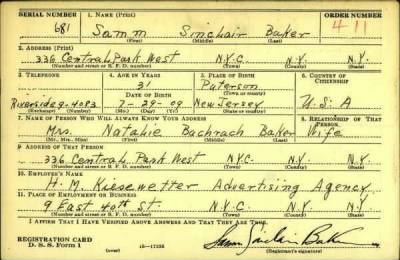 SERIAL NUMBER 1. NAME (Print) ORDER NUMBER
681 Samm Sinclair Baker 411
(First) (Middle) (Last)
2. ADDRESS (Print)
336 Central Park West N.Y.C. N.Y. N.Y.
(Number and street or R. F. D. number) (Town) (County) (State)
3. TELEPHONE 4. AGE IN YEARS 5. PLACE OF BIRTH 6. COUNTRY OF CITIZENSHIP
31 Paterson
Riverside 9-4083 DATE OF BIRTH (Town or county)
7-29-09 New Jersey U.S.A
(Exchange) (Number) (Mo.) (Day) (Yr.) (State or country)
7. NAME OF PERSON WHO WILL ALWAYS KNOW YOUR ADDRESS 8. RELATIONSHIP OF THAT PERSON
Mrs. Natalie Bachrach Baker Wife
(Mr., Mrs., Miss) (First) (Middle) (Last)
9. ADDRESS OF THAT PERSON
336 Central Park West N.Y.C. N.Y. N.Y.
(Number and street or R. F. D. number) (Town) (County) (State)
10. EMPLOYER'S NAME
H. M. Kiesewetter Advertising Agency
11. PLACE OF EMPLOYMENT OR BUSINESS
9 East 40th St. N.Y.C. N.Y. N.Y.
(Number and street or R. F. D. number) (Town) (County) (State)
I AFFIRM THAT I HAVE VERIFIED ABOVE ANSWERS AND THAT THEY ARE TRUE.
REGISTRATION CARD
D. S. S. Form 1 (over) 16-17105 Samm Sinclair Baker
(Registrant's signature)